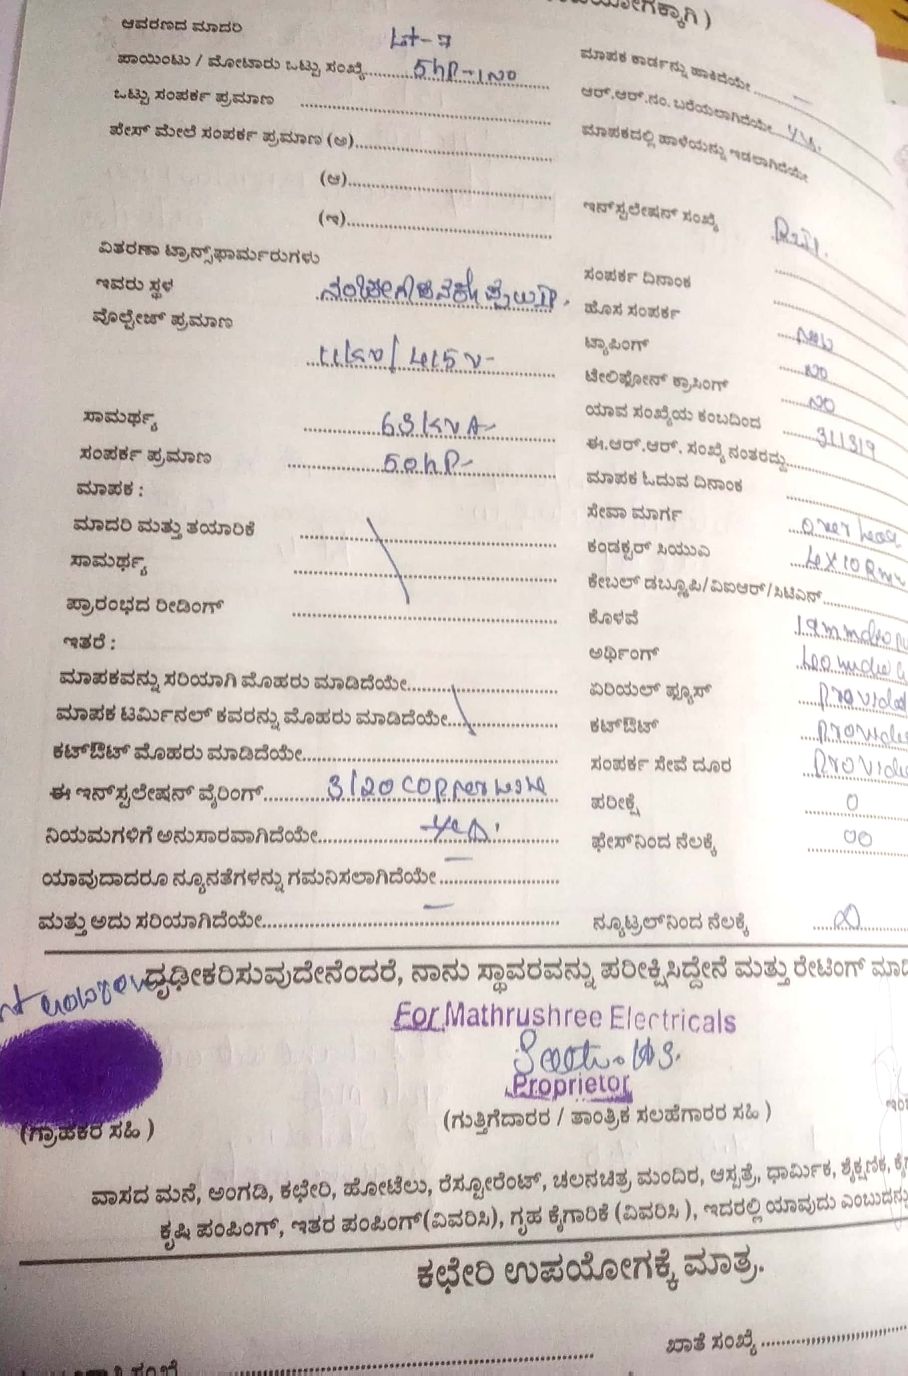 ಆವರಣದ ಮಾದರಿ Lt-7
ಪಾಯಿಂಟು / ಮೋಟಾರು ಒಟ್ಟು ಸಂಖ್ಯೆ 5hp-1no
ಒಟ್ಟು ಸಂಪರ್ಕ ಪ್ರಮಾಣ
ಫೇಸ್ ಮೇಲೆ ಸಂಪರ್ಕ ಪ್ರಮಾಣ (ಅ)
(ಆ)
(ಇ)
ವಿತರಣಾ ಟ್ರಾನ್ಸ್‌ಫಾರ್ಮರುಗಳು
ಇವರು ಸ್ಥಳ
ವೊಲ್ಟೇಜ್ ಪ್ರಮಾಣ
11kv/415v-
ಸಾಮರ್ಥ್ಯ 63kvA-
ಸಂಪರ್ಕ ಪ್ರಮಾಣ 50hp-
ಮಾಪಕ :
ಮಾದರಿ ಮತ್ತು ತಯಾರಿಕೆ
ಸಾಮರ್ಥ್ಯ
ಪ್ರಾರಂಭದ ರೀಡಿಂಗ್
ಇತರೆ :
ಮಾಪಕವನ್ನು ಸರಿಯಾಗಿ ಮೊಹರು ಮಾಡಿದೆಯೇ
ಮಾಪಕ ಟರ್ಮಿನಲ್ ಕವರನ್ನು ಮೊಹರು ಮಾಡಿದೆಯೇ
ಕಟ್‌ಔಟ್ ಮೊಹರು ಮಾಡಿದೆಯೇ
ಈ ಇನ್‌ಸ್ಟಲೇಷನ್ ವೈರಿಂಗ್ 3/20 copper
ನಿಯಮಗಳಿಗೆ ಅನುಸಾರವಾಗಿದೆಯೇ yes.
ಯಾವುದಾದರೂ ನ್ಯೂನತೆಗಳನ್ನು ಗಮನಿಸಲಾಗಿದೆಯೇ —
ಮತ್ತು ಅದು ಸರಿಯಾಗಿದೆಯೇ —
ಮಾಪಕ ಕಾರ್ಡನ್ನು ಹಾಕಿದೆಯೇ —
ಆರ್.ಆರ್.ನಂ. ಬರೆಯಲಾಗಿದೆಯೇ
ಮಾಪಕದಲ್ಲಿ ಹಾಳೆಯನ್ನು ಇಡಲಾಗಿದೆಯೇ
ಇನ್‌ಸ್ಟಲೇಷನ್ ಸಂಖ್ಯೆ
ಸಂಪರ್ಕ ದಿನಾಂಕ
ಹೊಸ ಸಂಪರ್ಕ new
ಟ್ಯಾಪಿಂಗ್ no
ಟೇಲಿಫೋನ್ ಕ್ರಾಸಿಂಗ್ no
ಯಾವ ಸಂಖ್ಯೆಯ ಕಂಬದಿಂದ
ಈ.ಆರ್.ಆರ್. ಸಂಖ್ಯೆ ನಂತರದ್ದು
ಮಾಪಕ ಓದುವ ದಿನಾಂಕ
ಸೇವಾ ಮಾರ್ಗ over
ಕಂಡಕ್ಟರ್ ಸಿಯುಎ
ಕೇಬಲ್ ಡಬ್ಲ್ಯೂಪಿ/ವಿಐಆರ್/ಸಿಟಿಎಸ್
ಕೊಳವೆ
ಅರ್ಥಿಂಗ್
ಏರಿಯಲ್ ಫ್ಯೂಸ್ provided
ಕಟ್‌ಔಟ್
ಸಂಪರ್ಕ ಸೇವೆ ದೂರ
ಪರೀಕ್ಷೆ 0
ಫೇಸ್‌ನಿಂದ ನೆಲಕ್ಕೆ 00
ನ್ಯೂಟ್ರಲ್‌ನಿಂದ ನೆಲಕ್ಕೆ
ದೃಢೀಕರಿಸುವುದೇನೆಂದರೆ, ನಾನು ಸ್ಥಾವರವನ್ನು ಪರೀಕ್ಷಿಸಿದ್ದೇನೆ ಮತ್ತು ರೇಟಿಂಗ್
For Mathrushree Electricals
Proprietor
(ಗ್ರಾಹಕರ ಸಹಿ )
(ಗುತ್ತಿಗೆದಾರರ / ತಾಂತ್ರಿಕ ಸಲಹೆಗಾರರ ಸಹಿ )
ವಾಸದ ಮನೆ, ಅಂಗಡಿ, ಕಛೇರಿ, ಹೋಟೆಲು, ರೆಸ್ಟೋರೆಂಟ್, ಚಲನಚಿತ್ರ ಮಂದಿರ, ಆಸ್ಪತ್ರೆ, ಧಾರ್ಮಿಕ, ಶೈಕ್ಷಣಿಕ,
ಕೃಷಿ ಪಂಪಿಂಗ್, ಇತರ ಪಂಪಿಂಗ್(ವಿವರಿಸಿ), ಗೃಹ ಕೈಗಾರಿಕೆ (ವಿವರಿಸಿ ), ಇದರಲ್ಲಿ ಯಾವುದು ಎಂಬುದನ್ನು
ಕಛೇರಿ ಉಪಯೋಗಕ್ಕೆ ಮಾತ್ರ.
ಖಾತೆ ಸಂಖ್ಯೆ